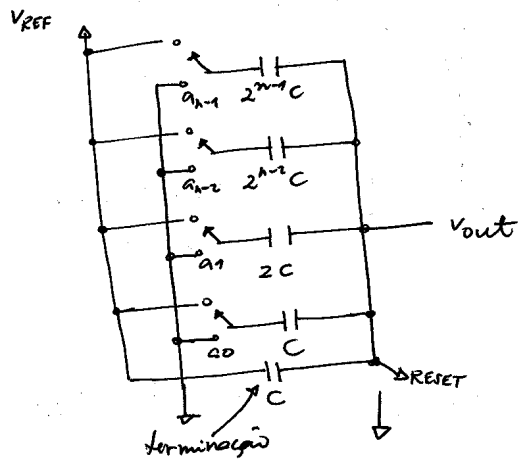 VREF
a_{n-1} 2^{n-1}C
a_{n-2} 2^{n-2}C
Vout
a1 2C
a0 C
C RESET
terminação